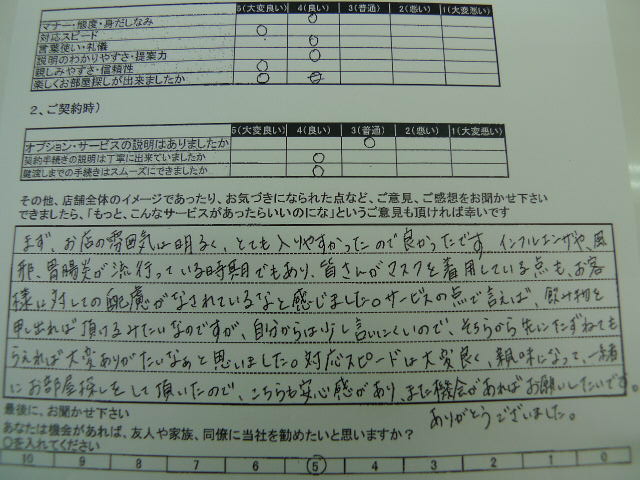 5(大変良い) 4(良い) 3(普通) 2(悪い) 1(大変悪い)
マナー・態度・身だしなみ ○
対応スピード ○
言葉使い・礼儀 ○
説明のわかりやすさ・提案力 ○
親しみやすさ・信頼性 ○
楽しくお部屋探しが出来ましたか ○ ○
2、ご契約時)
5(大変良い) 4(良い) 3(普通) 2(悪い) 1(大変悪い)
オプション・サービスの説明はありましたか ○
契約手続きの説明は丁寧に出来ていましたか ○
鍵渡しまでの手続きはスムーズにできましたか ○
その他、店舗全体のイメージであったり、お気づきになられた点など、ご意見、ご感想をお聞かせ下さい
できましたら、「もっと、こんなサービスがあったらいいのにな」というご意見も頂ければ幸いです
まず、お店の雰囲気は明るく、とても入りやすかったので良かったです インフルエンザや、風
邪、胃腸炎が流行っている時期でもあり、皆さんがマスクを着用している点も、お客
様に対しての配慮がなされているなと感じました。サービスの点で言えば、飲み物を
申し出れば頂けるみたいなのですが、自分からは少し言いにくいので、そちらから先にたずねても
らえれば大変ありがたいなぁと思いました。対応スピードは大変良く、親味になって、一緒
にお部屋探しをして頂いたので、こちらも安心感があり、また機会があればお願いしたいです。
ありがとうございました。
最後に、お聞かせ下さい
あなたは機会があれば、友人や家族、同僚に当社を勧めたいと思いますか?
○を入れてください
10 9 8 7 6 5 4 3 2 1 0